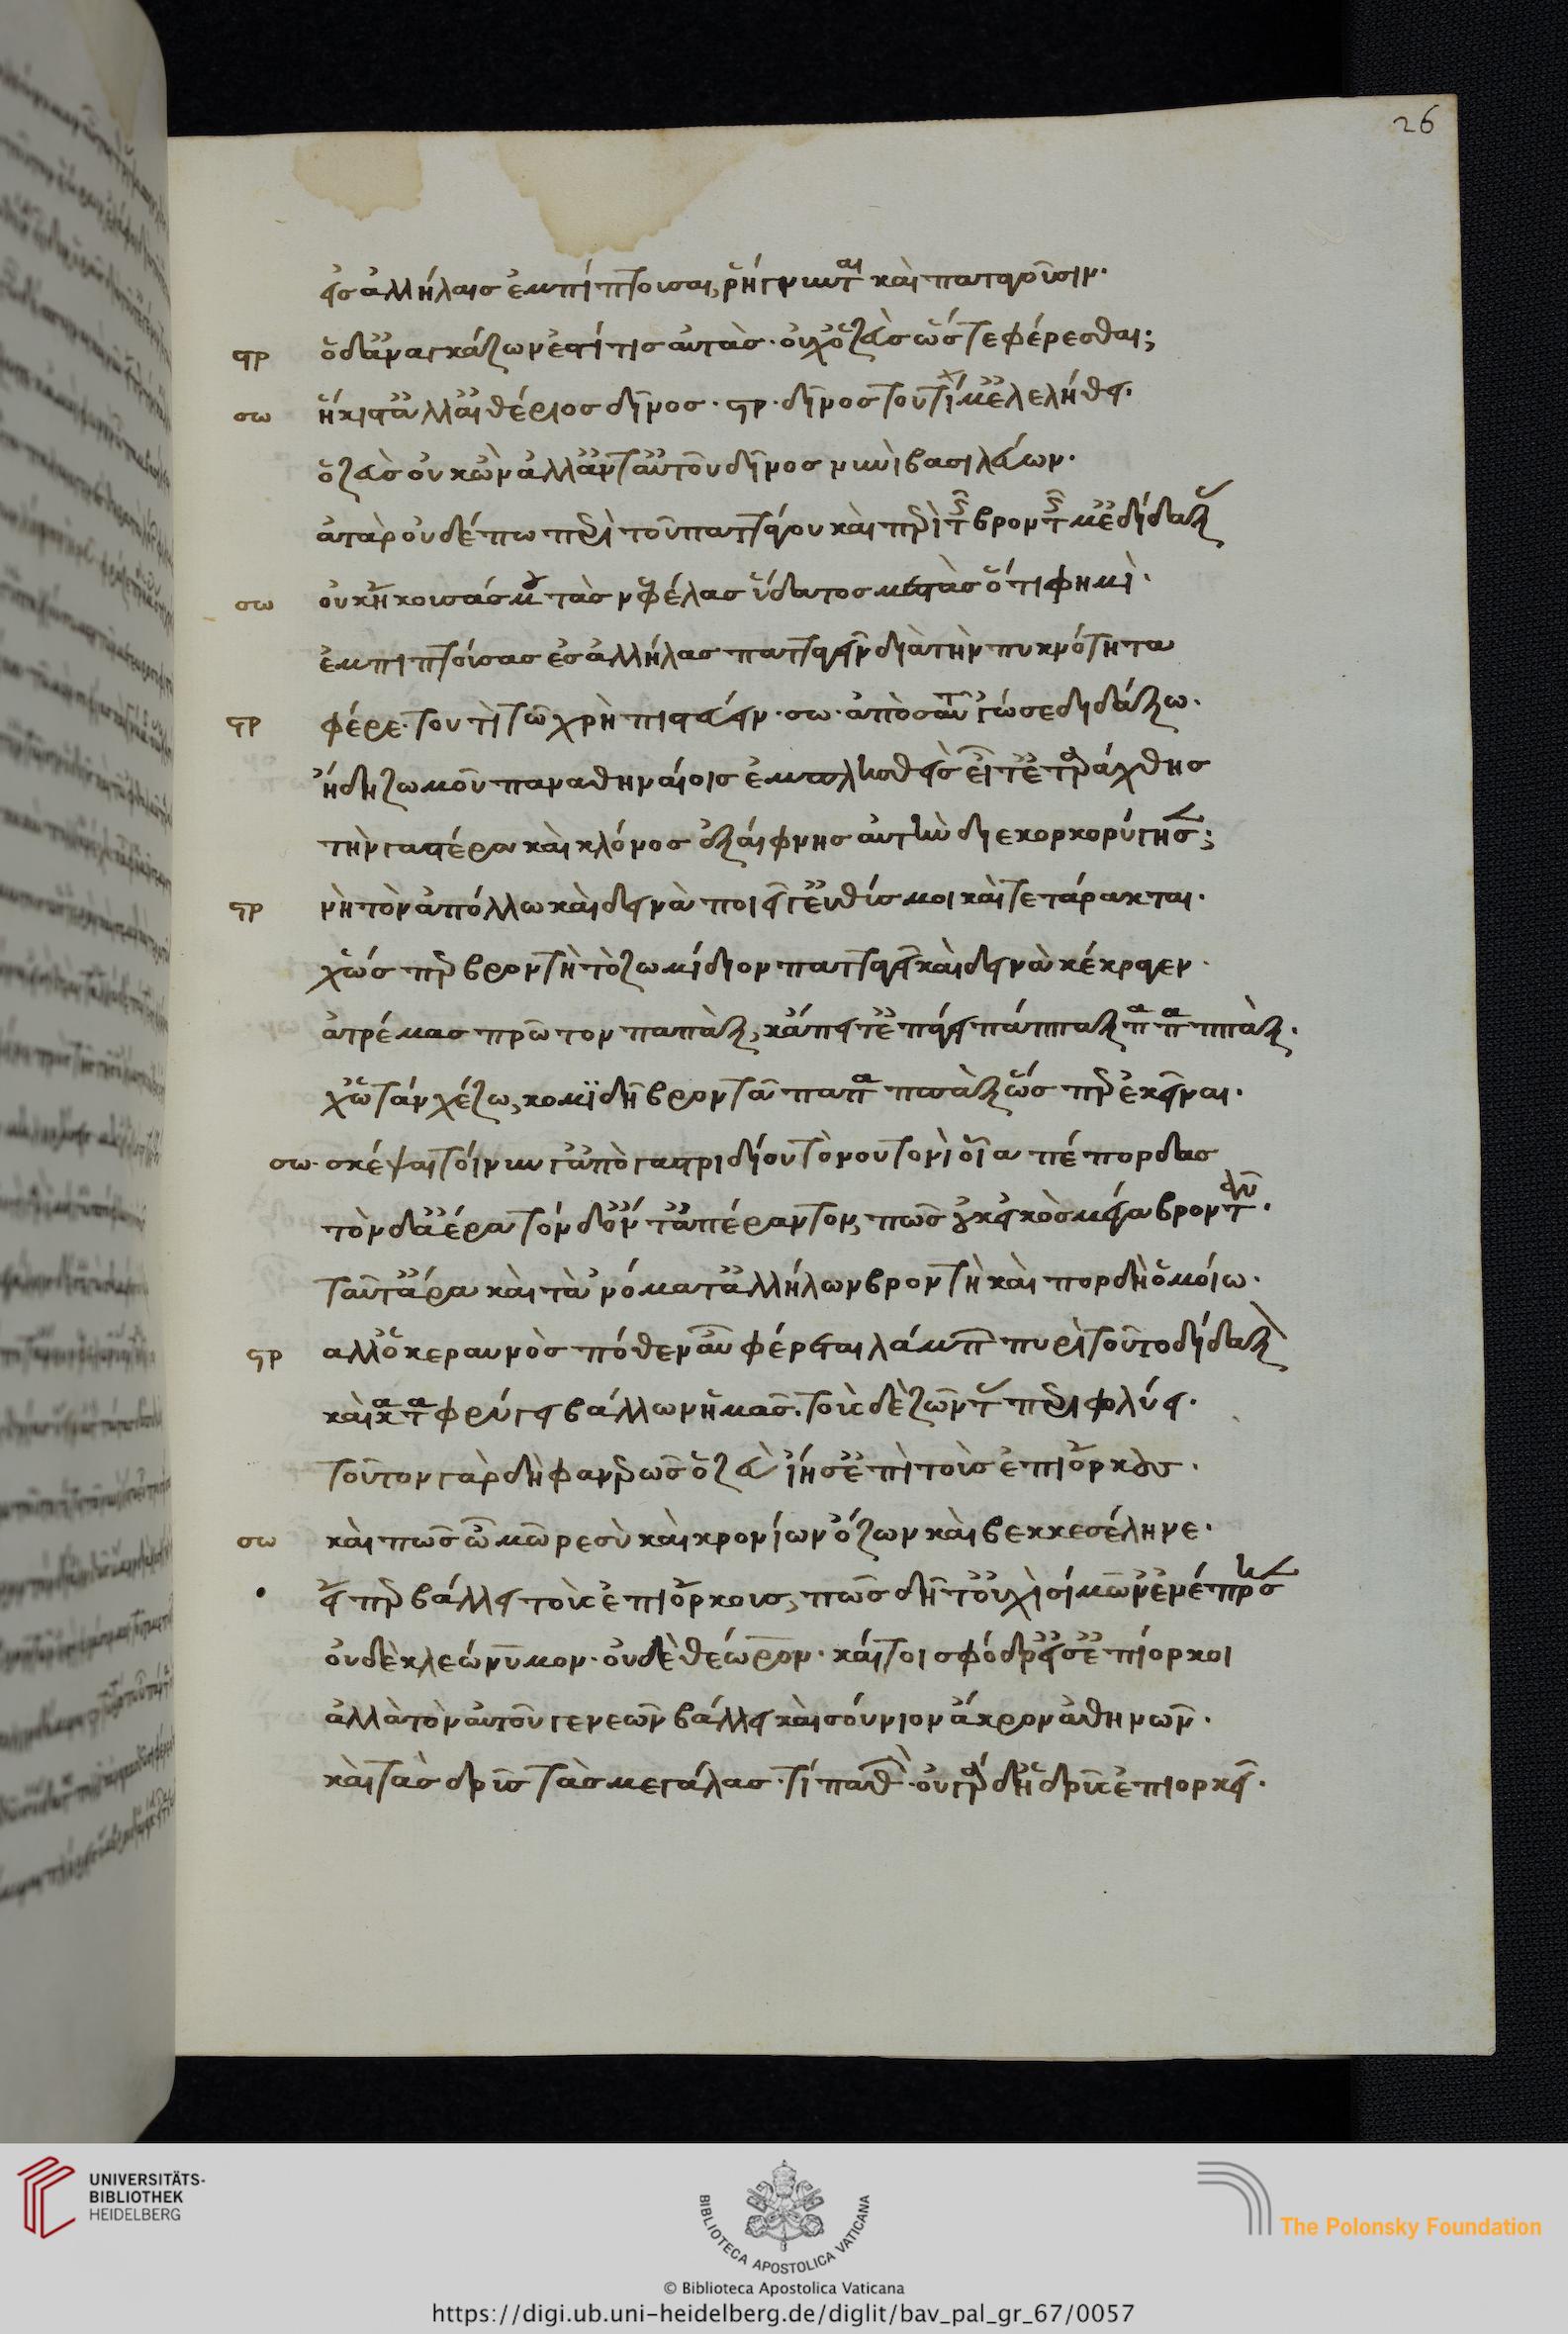 26
ἐς ἀλλήλαις ἐμπίπτουσαι, ῥήγνυνται καὶ παταγοῦσιν.
στρ ὁ δ' ἀναγκάζων ἐστί τις αὐτὰς. οὐχ ὁ ζεὺς ὥστε φέρεσθαι;
σω ἥκιστ' ἀλλ' αἰθέριος δῖνος. στρ. δῖνος τουτί μ' ἐλελήθει.
ὁ ζεὺς οὐκ ὢν ἀλλ' ἀντ' αὐτοῦ δῖνος νυνὶ βασιλεύων.
ἀτὰρ οὐδέπω περὶ τοῦ πατάγου καὶ περὶ τῆς βροντῆς μ' ἐδίδαξας
σω οὐκ ἤκουσάς μου τὰς νεφέλας ὕδατος μεστὰς ὅτι φημὶ.
ἐμπιπτούσας ἐς ἀλλήλας παταγεῖν διὰ τὴν πυκνότητα
στρ φέρε. τουτὶ τῶ χρὴ πιστεύειν. σω. ἀπὸ σαυτοῦ 'γώ σε διδάξω.
ἤδη ζωμοῦ παναθηναίοις ἐμπλησθεὶς εἶτ' ἐταράχθης
τὴν γαστέρα καὶ κλόνος ἐξαίφνης αὐτὴν διεκορκορύγησεν;
στρ νὴ τὸν ἀπόλλω καὶ δεινὰ ποιεῖ γ' εὐθύς μοι καὶ τετάρακται.
χὥσπερ βροντὴ τὸ ζωμίδιον παταγεῖ καὶ δεινὰ κέκραγεν.
ἀτρέμας πρῶτον παπὰξ, κἄπειτ' ἐπάγει πάππαξ παπαππὰξ.
χὤταν χέζω, κομϊδῇ βροντᾶ παπαππὰξ ὥσπερ ἐκεῖναι.
σω. σκέψαι τοίνυν γ' ἀπὸ γαστριδίου τὸνουτονὶ οἷα πέπορδας
τὸν δ' ἀέρα τόνδ' ὄντ' ἀπέραντον, πῶς οὐκ εἰκὸς μέγα βροντᾶν.
ταῦτ' ἄρα καὶ τὰ 'νόματ' ἀλλήλων βροντὴ καὶ πορδὴ ὁμοίω.
στρ αλλ' ὁ κεραυνὸς πόθεν αὖ φέρεται λάμπων πυρὶ τοῦτο δίδαξον
καὶ καταφρύγει βάλλων ἡμᾶς. τοὺς δὲ ζῶντας περιφλύει.
τοῦτον γὰρ δὴ φανερῶς ὁ ζεὺς ἵησ' ἐπὶ τοὺς ἐπιόρκους.
σω καὶ πῶς ὦ μῶρε σὺ καὶ κρονίων ὄζων καὶ βεκκεσέληνε.
εἴπερ βάλλει τοὺς ἐπιόρκους, πῶς δῆτ' οὐχὶ σίμων' ἐνέπρησεν
οὐδὲ κλεώνυμον. οὐδὲ θέωρον. καίτοι σφόδρα γ' εἰσ' ἐπίορκοι
ἀλλὰ τὸν αὐτοῦ γε νεὼν βάλλει καὶ σούνιον ἄκρον ἀθηνῶν.
καὶ τὰς δρῦς τὰς μεγάλας. τί παθὼν. οὐ γὰρ δὴ δρῦς ἐπιορκεῖ.
UNIVERSITÄTS-
BIBLIOTHEK
HEIDELBERG
BIBLIOTECA APOSTOLICA VATICANA
The Polonsky Foundation
© Biblioteca Apostolica Vaticana
https://digi.ub.uni-heidelberg.de/diglit/bav_pal_gr_67/0057